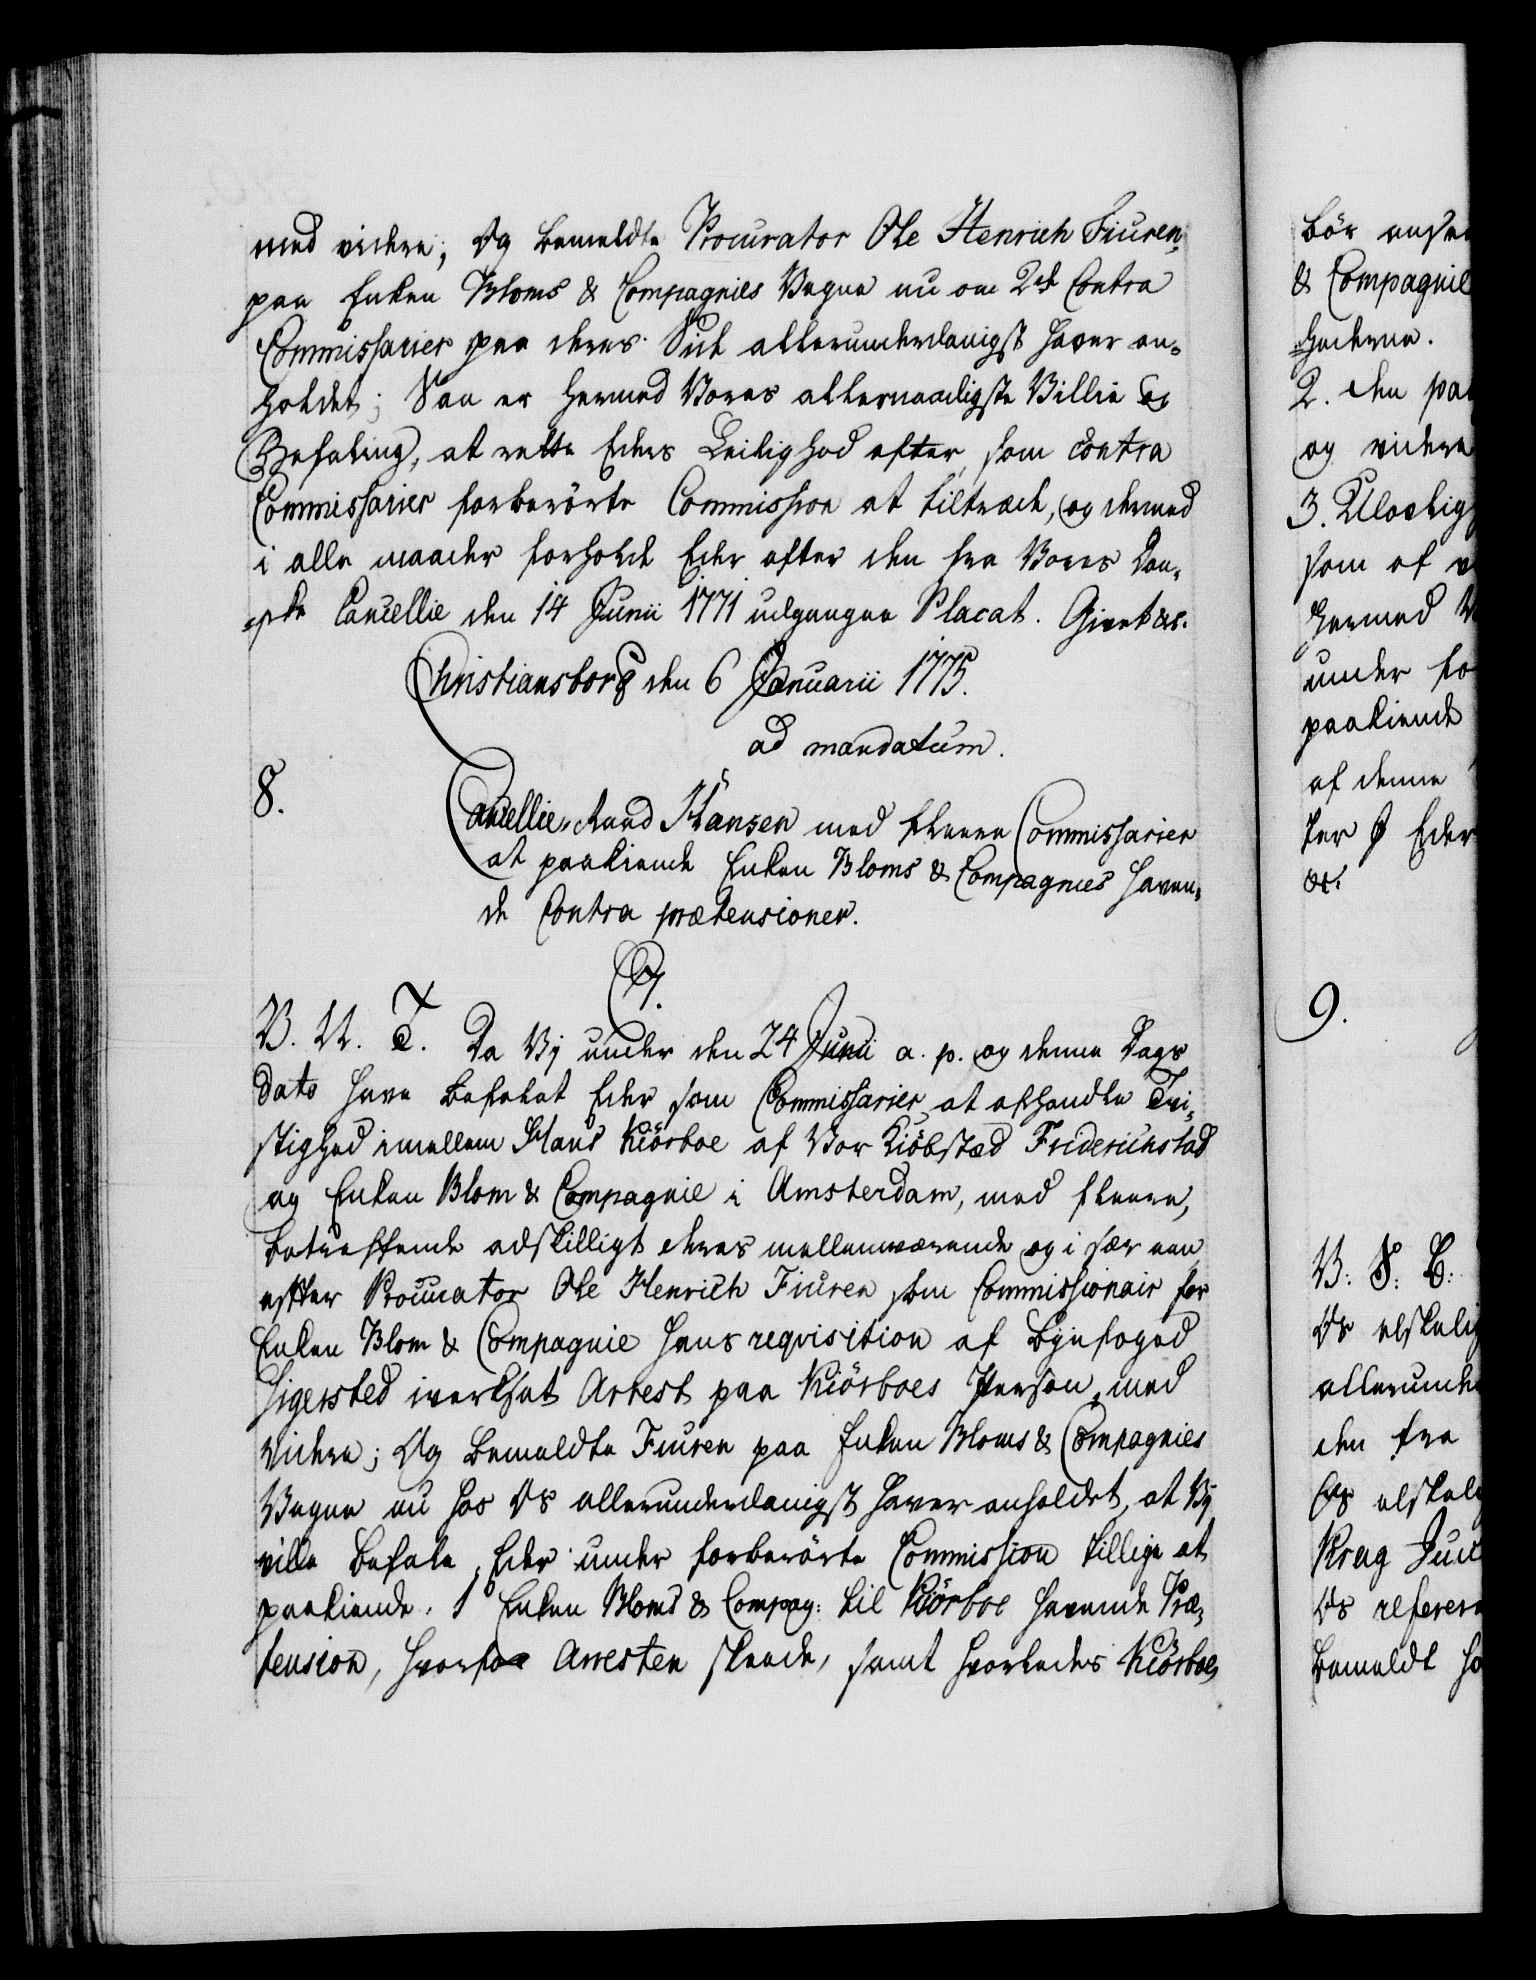 med videre; Og bemeldte Procurator Ole Henrich Fiuren,
paa Enken Bloms & Compagnies Vegne nu om 2de Contra
Commissarier paa deres Side allerunderdanigst haver an-
holdet; Saa er hermed Vores allernaadigste Villie og
Befaling, at rette Eders Leilighed efter, som Contra
Commissarier forberörte Commission at tiltræde, og dermed
i alle maader forholde Eder efter den fra Vores Dan-
ske Cancellie den 14 Junii 1771 udgangne Placat. Givet &c.
Christiansborg den 6 Januarii 1775.
ad mandatum.
8.
Cancellie-Raad Hansen med fleere Commissarier
at paakiende Enken Bloms & Compagnies haven-
de Contra prætensioner.
C7.
V. U. T. Da Vj under den 24 Junii a. p. og denne Dags
Dato have befalet Eder som Commissarier at afhandle Tvi-
stighed imellem Hans Kiörboe af Vor Kiöbstæd Friderichstad
og Enken Blom & Compagnie i Amsterdam, med fleere,
betreffende adskilligt deres mellemværende og i sær een
efter Procurator Ole Henrich Fiuren som Commissionair for
Enken Blom & Compagnie hans reqvisition af Byefoged
Sigersted iverksat Arrest paa Kiörboes Person, med
videre; Og bemeldte Fiuren paa Enken Bloms & Compagnies
Vegne nu hos Os allerunderdanigst haver anholdet, at Vj
ville befale, Eder under forberörte Commission tillige at
paakiende. 1o Enken Bloms & Compag: til Kiörboe havende Præ-
tension, hvorfor Arresten skeede, samt hvorledes Kiörboe,
bör ansee
& Compagnie
hederne.
2. den paa
og videre
3. Ulovlig
som af
hermed
under fo
paakiende
af denne
ter Eder
&c.
9.
V: S: B:
Os elskelig
allerunde
den fra
Os elskel
Krag
Os referer
bemeldt